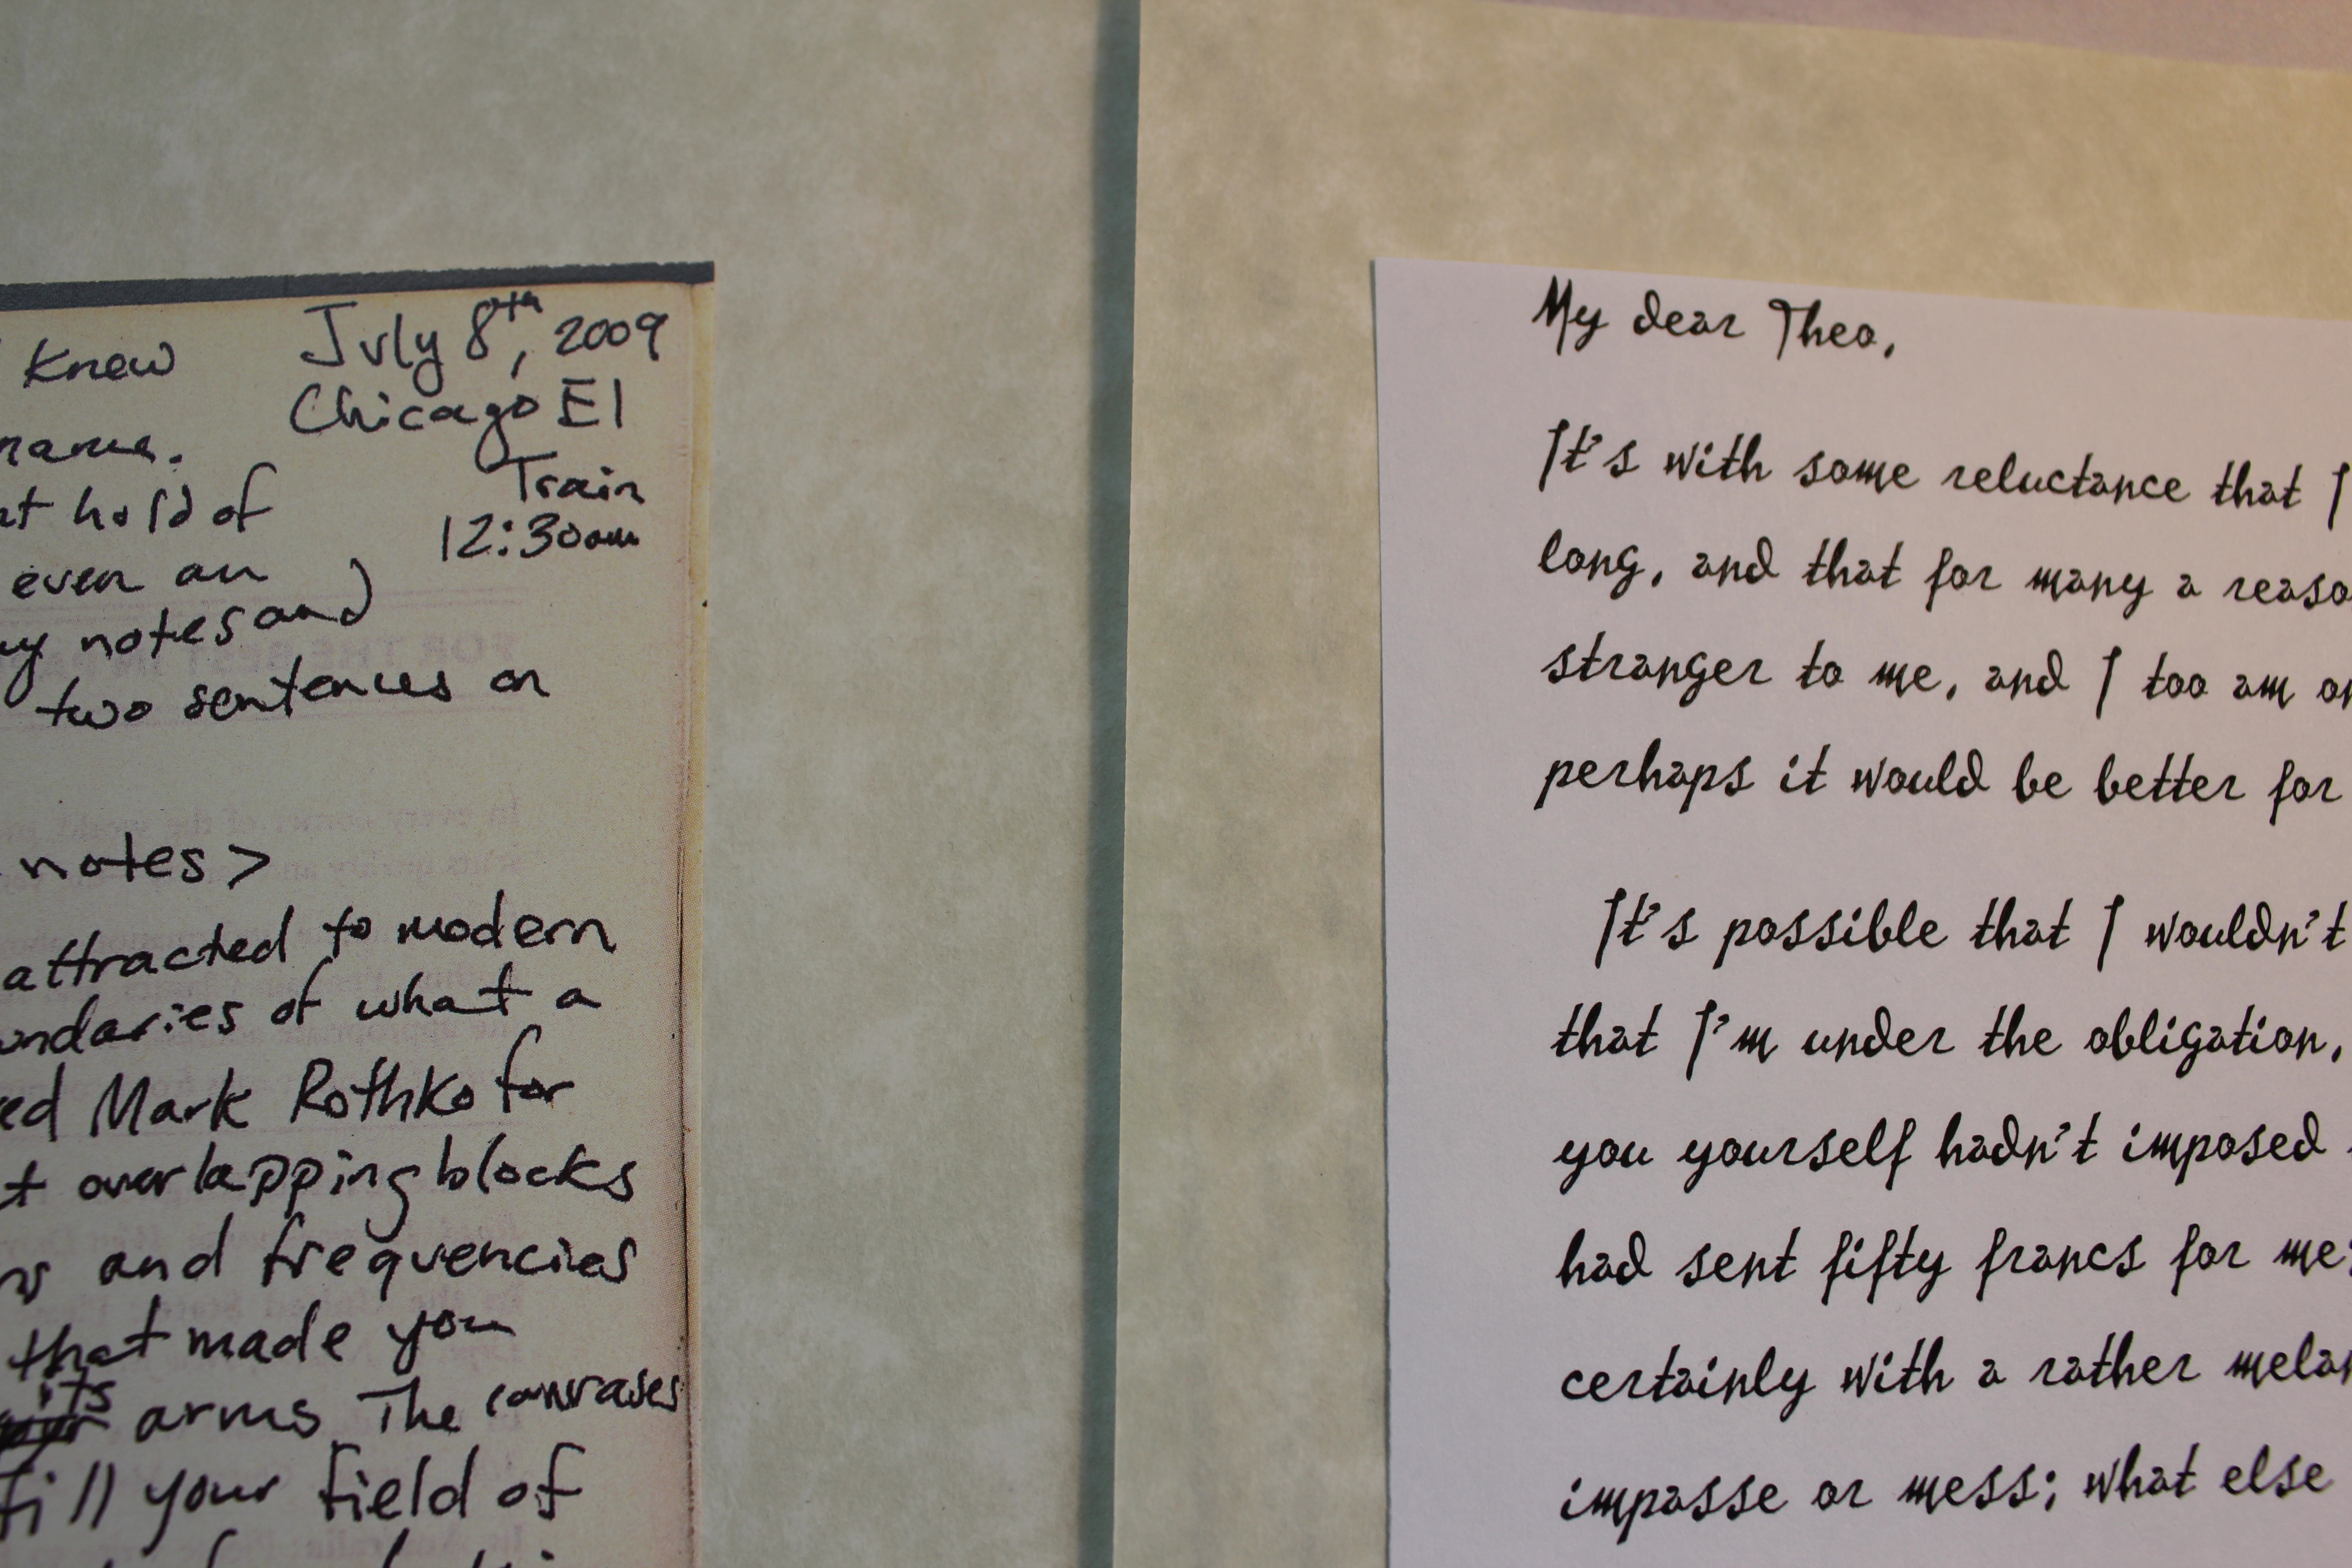 Knew
July 8th, 2009
Chicago El
name.
Train
hold of
12:30am
even an
notes and
two sentences on
notes >
attracted to modern
of what a
Mark Rothko for
overlapping blocks
and frequencies
that made you
its
arms The canvases
fill your field of
My dear Theo,
It's with some reluctance that I
long, and that for many a reaso
stranger to me, and I too am on
perhaps it would be better for
It's possible that I wouldn't
that I'm under the obligation,
you yourself hadn't imposed
had sent fifty francs for me;
certainly with a rather melan
impasse or mess; what else